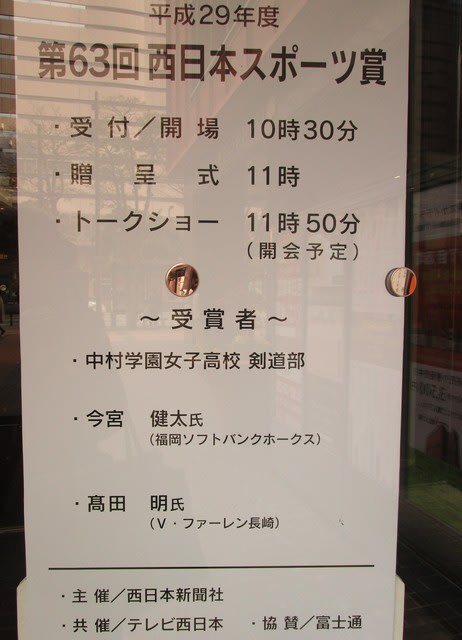 平成29年度
第63回 西日本スポーツ賞
・受付／開場 10時30分
・贈呈式 11時
・トークショー 11時50分
(開会予定)
～受賞者～
・中村学園女子高校 剣道部
・今宮 健太氏
(福岡ソフトバンクホークス)
・髙田 明氏
(V・ファーレン長崎)
・主催／西日本新聞社
・共催／テレビ西日本 ・協賛／富士通